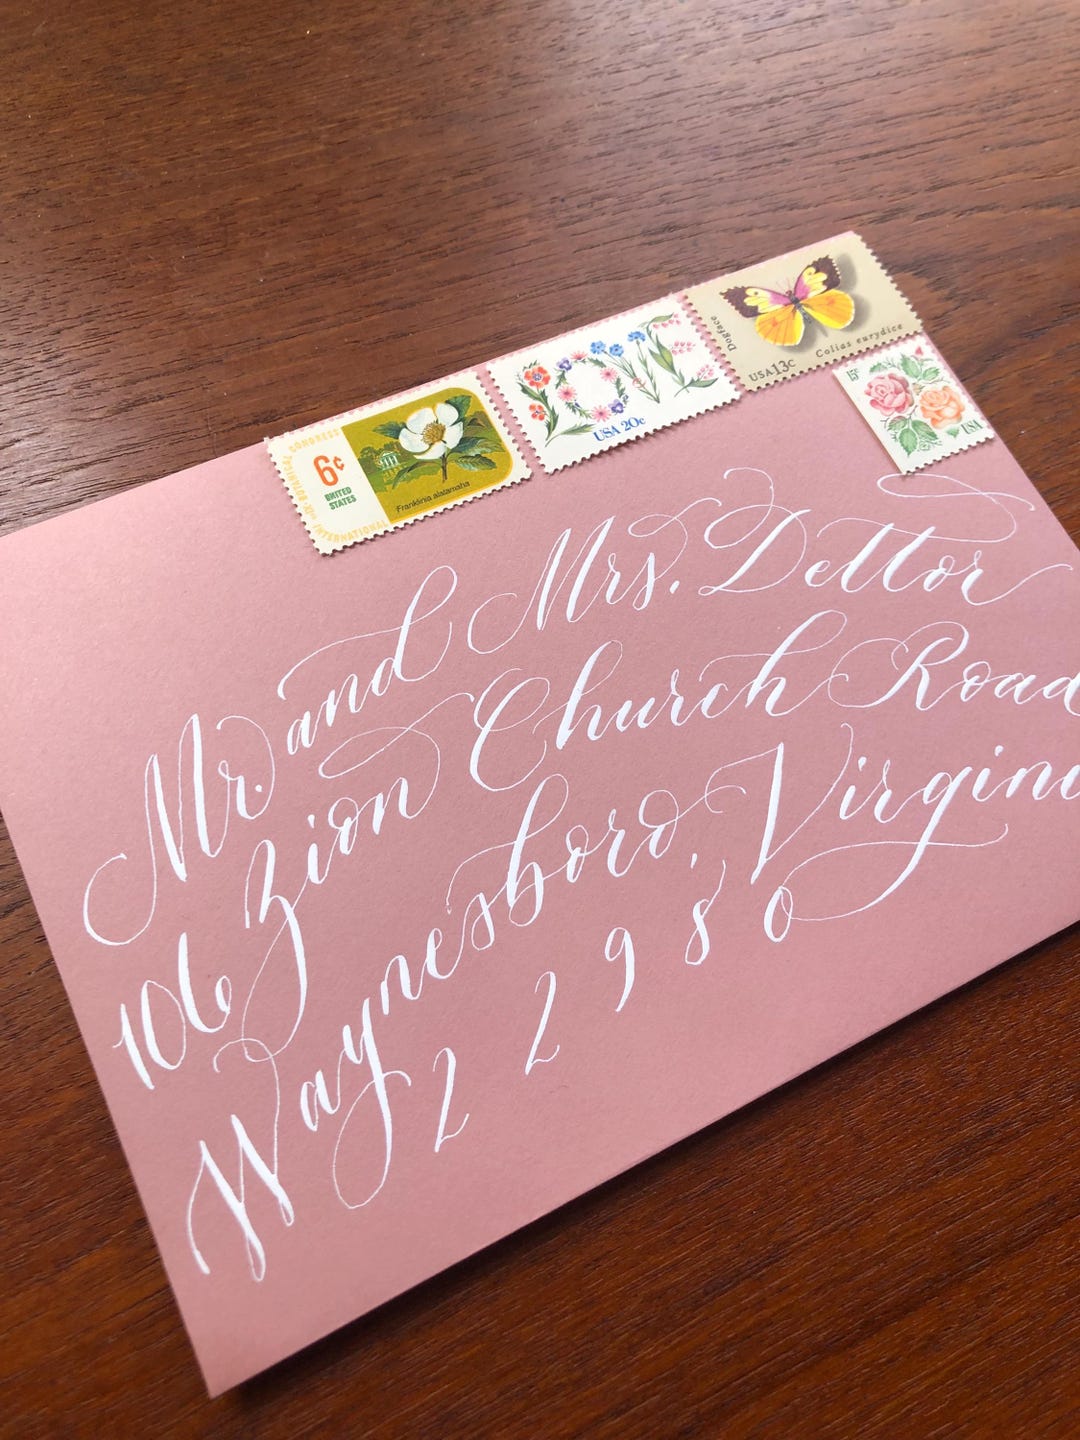 CONGRESS
XI INT. BOTANICAL
INTERNATIONAL
6¢
UNITED
STATES
Franklinia alatamaha
LOVE
USA 20c
Dogface
USA13c
Colias eurydice
15c
USA
Mr. and Mrs. Dettor
106 Zion Church Road
Waynesboro, Virgini
22980